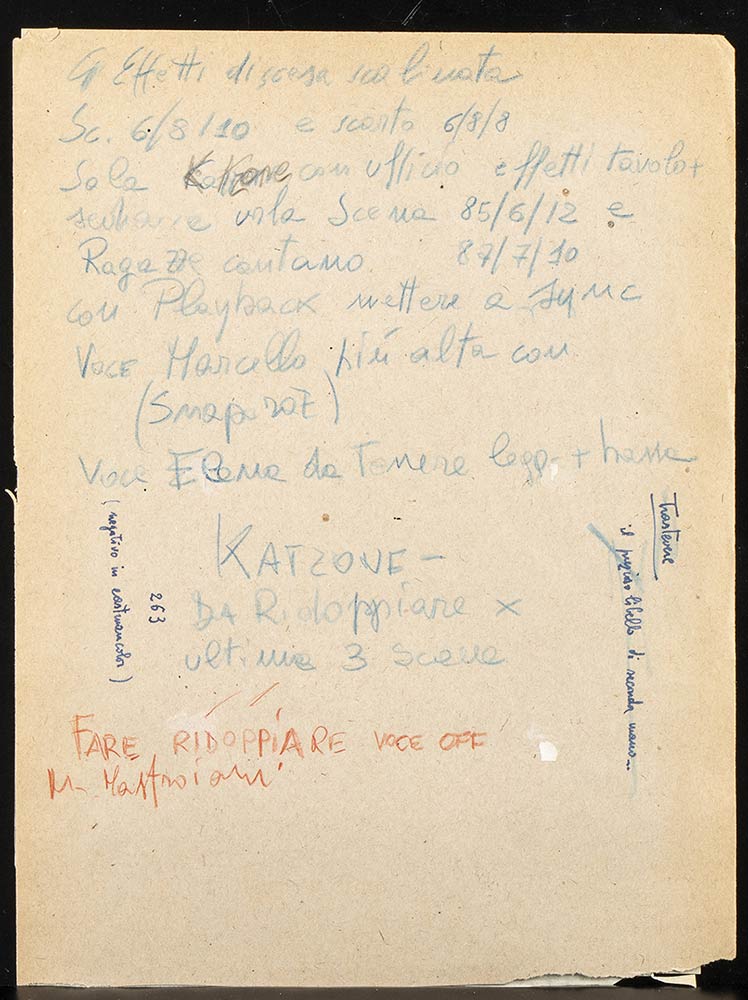 Effetti discesa scalinata
Sc. 6/8/10 e scarto 6/8/8
Sala Katzone con ufficio effetti tavolo +
vola Scena 85/6/12 e
Ragazze cantano 87/7/10
con Playback mettere a Sync
Voce Marcello più alta con
(Snaporaz)
Voce Elena da Tenere legg. + bassa
Trastevere
il libello di seconda mano...
(negativo in eastmancolor)
263
KATZONE -
DA Ridoppiare x
ultima 3 Scene
FARE RIDOPPIARE VOCE OFF
M. Mastroianni